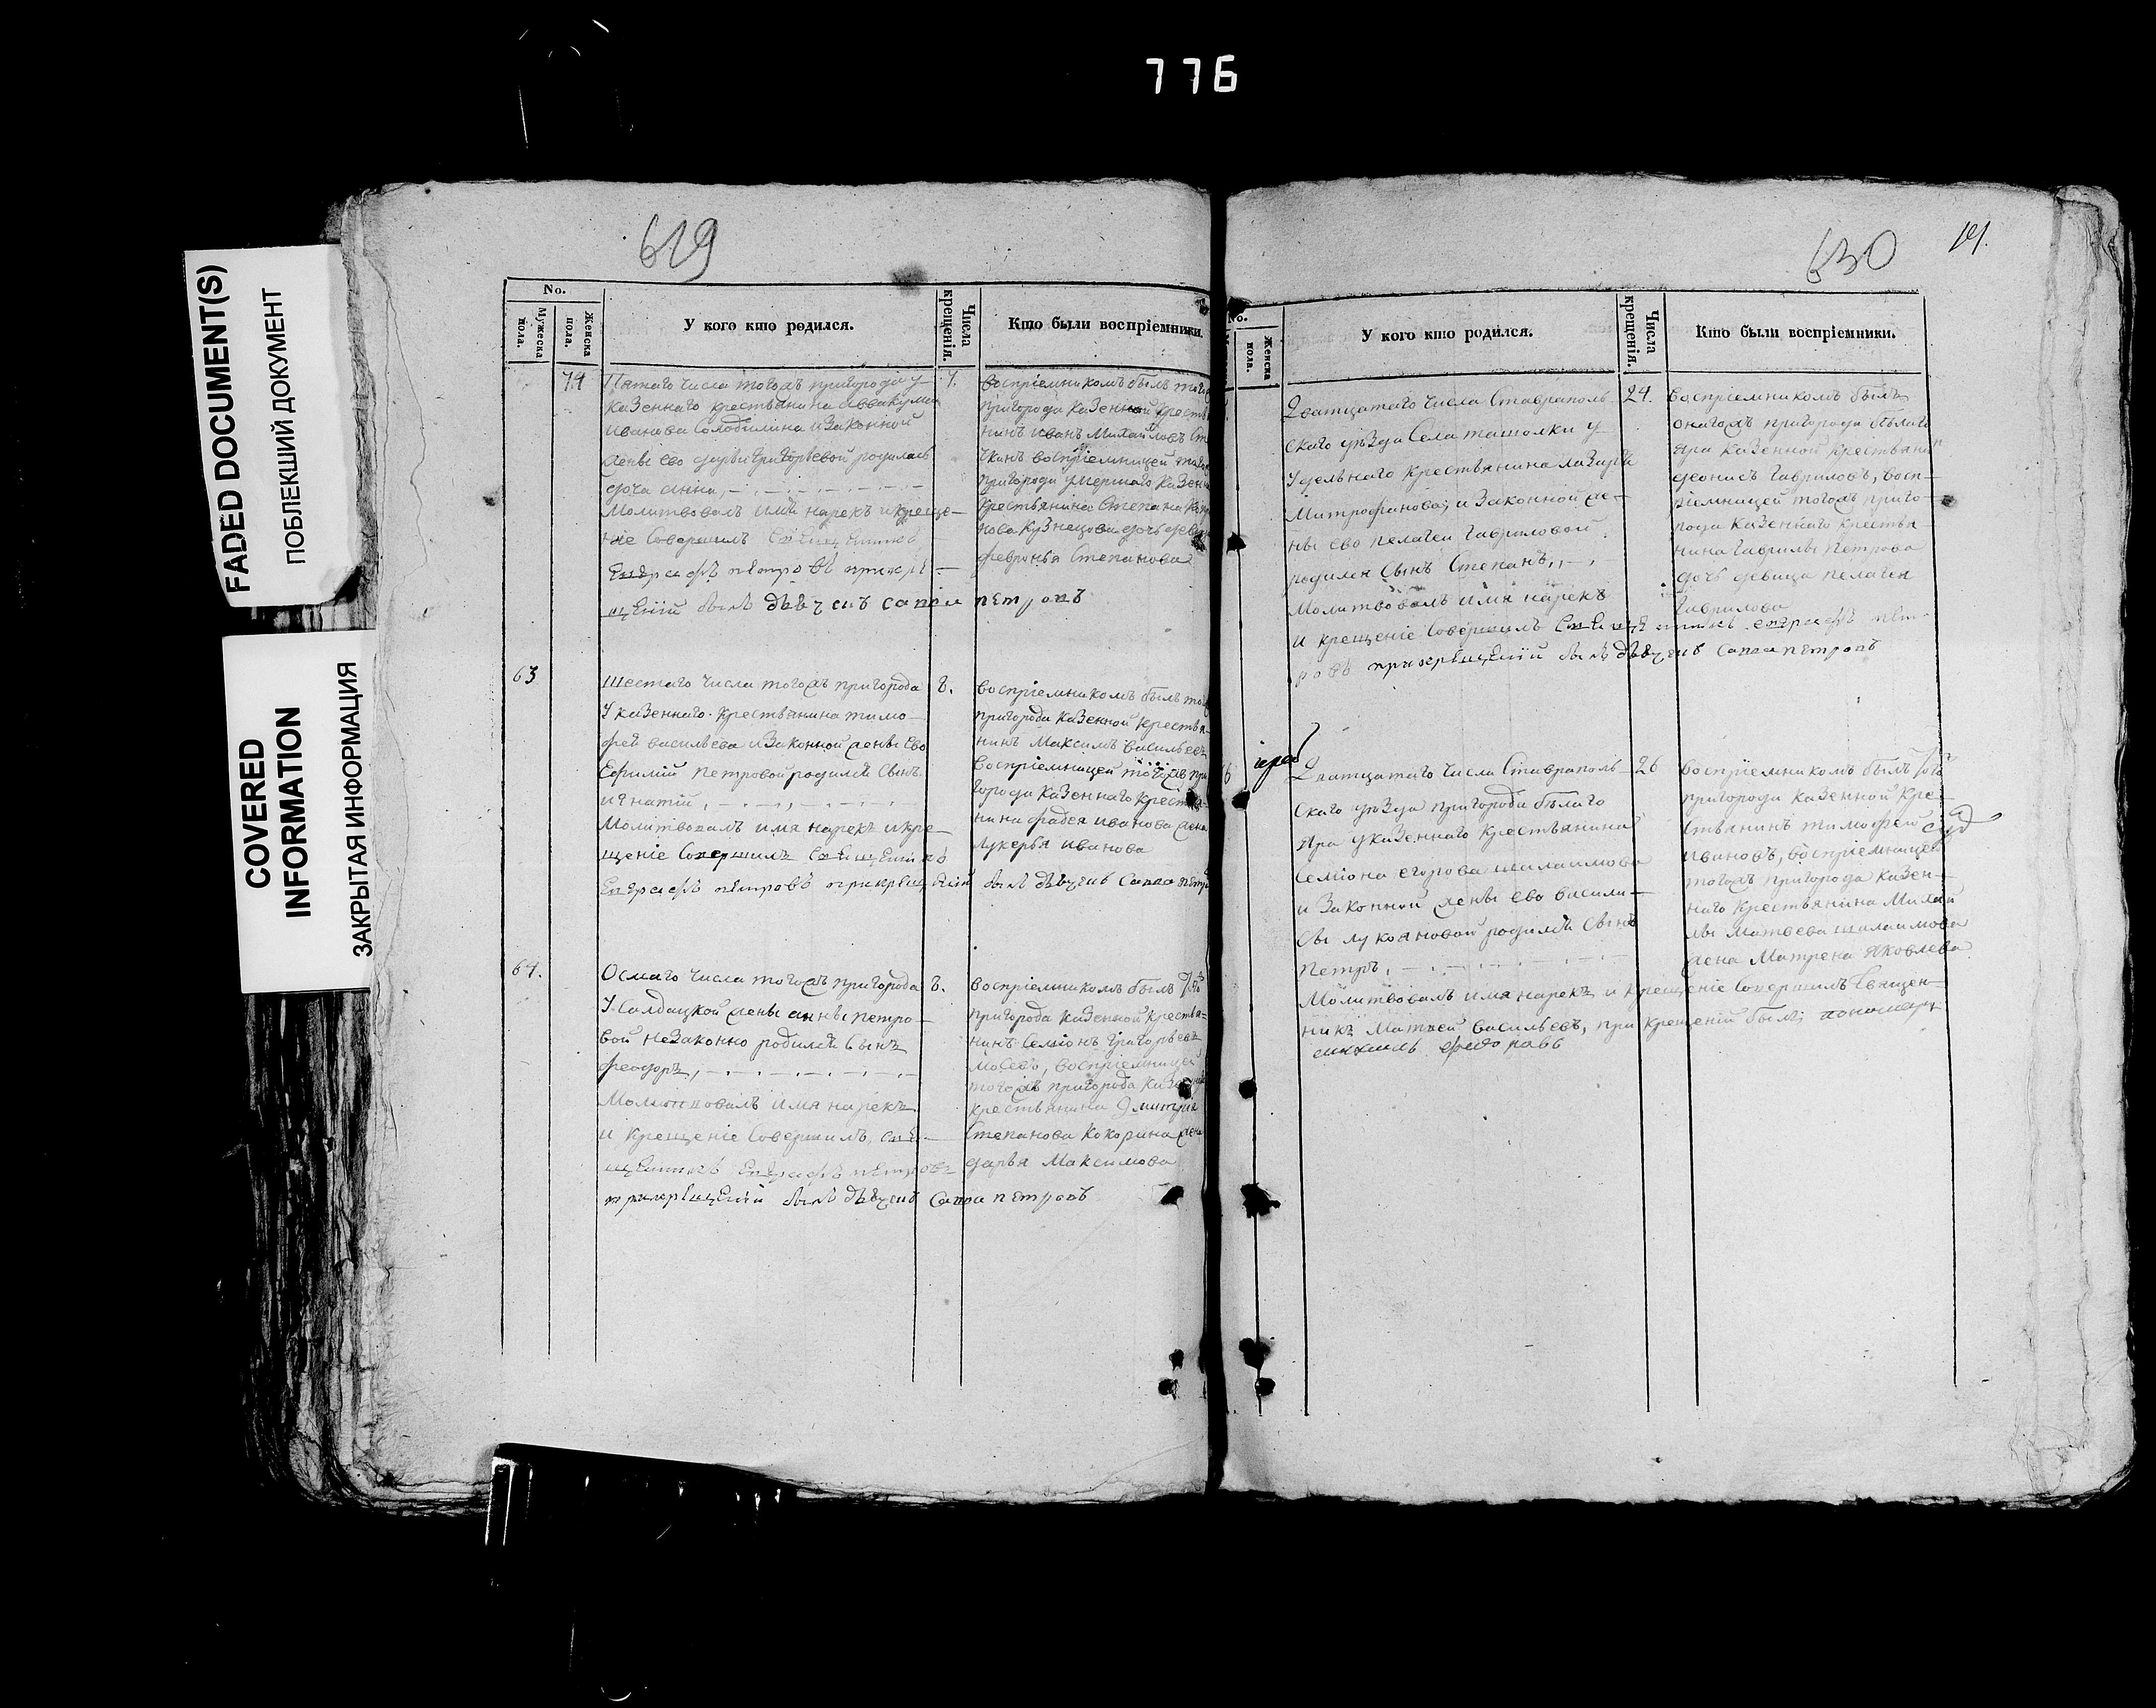 776
FADED DOCUMENT(S)
ПОБЛЕКШИЙ ДОКУМЕНТ
COVERED
INFORMATION
ЗАКРЫТАЯ ИНФОРМАЦИЯ
629
No.
Мужеска пола.
Женска пола.
У кого кто родился.
Числа крещенія.
Кто были воспріемники.
74
Пятаго числа тогожъ пригорода у
казеннаго крестьянина Аввакума
Иванова Солодилина и законной
жены ево дарьи Григорьевой родилась
дочь анна,
Молитвовалъ имя нарекъ и креще-
ніе Совершилъ Священникъ
Евграфъ петровъ прикре-
щеніи былъ дьячекъ Савва петровъ
7.
воспріемникомъ былъ того
пригорода казенной кресть
нинъ иванъ Михайловъ Ст
чкинъ воспріемницей тогож
пригорода умершаго казен
крестьянина Степана
нова кузнецова дочь дев
февронья Степанова
63
шестаго числа тогожъ пригорода
У казеннаго крестьянина тимо-
фея васильева и законной жены ево
Ефиміи петровой родился Сынъ
игнатій,
Молитвовалъ имя нарекъ и кре-
щеніе Совершилъ Священникъ
Евграфъ петровъ прикрещеніи былъ дьячекъ Савва петр
8.
воспріемникомъ былъ того
пригорода казенной крестья-
нинъ Максимъ васильевъ
воспріемницей тогожъ при
города казеннаго крестья-
нина фадея иванова жена
лукерья иванова
64.
Осмаго числа тогожъ пригорода
У Салдацкой жены анны петро-
вой незаконно родился Сынъ
феодоръ,
Молитвовалъ имя нарекъ
и крещеніе Совершилъ свя-
щенникъ Евграфъ петровъ
прикрещеніи былъ дьячекъ Савва петровъ
8.
воспріемникомъ былъ
пригорода казенной крестья-
нинъ Семіонъ Григорьевъ
Мосевъ, воспріемницей
тогожъ пригорода казен
крестьянина Дмитрія
Степанова Кокорина жена
дарья Максимова
630
14.
No.
Женска пола.
У кого кто родился.
Числа крещенія.
Кто были воспріемники.
Дватцатаго числа Ставраполь-
скаго уѣзда Села ташолки у
Удельнаго крестьянина лазаря
Митрофанова, и законной же-
ны ево пелагеи Гавриловой
родился Сынъ Степанъ,
Молитвовалъ имя нарекъ
и крещеніе Совершилъ Священникъ евграфъ пет-
ровъ прикрещеніи былъ дьячекъ Савва петровъ
24.
воспріемникомъ былъ
онагожъ пригорода бѣлаго
яра казенной крестьяни
деонисъ Гавриловъ, восп-
ріемницей тогожъ приго-
рода казеннаго крестья-
нина Гаврилы Петрова
дочь девица пелагея
Гаврилова
Дватцатаго числа Ставраполь-
скаго уѣзда пригорода бѣлаго
Яра у казеннаго крестьянина
Семіона егорова шалаимова
и законной жены ево васили-
сы лукояновой родился Сынъ
Петръ,
Молитвовалъ имя нарекъ и крещеніе Совершилъ Священ-
никъ Матвей васильевъ, при крещеніи былъ понамарь
26
воспріемникомъ былъ
пригорода казенной кре-
стьянинъ тимофей
ивановъ, воспріемницей
тогожъ пригорода казен-
наго крестьянина Михай
лы Матвева шалаимова
жена Матрена Яковлева.